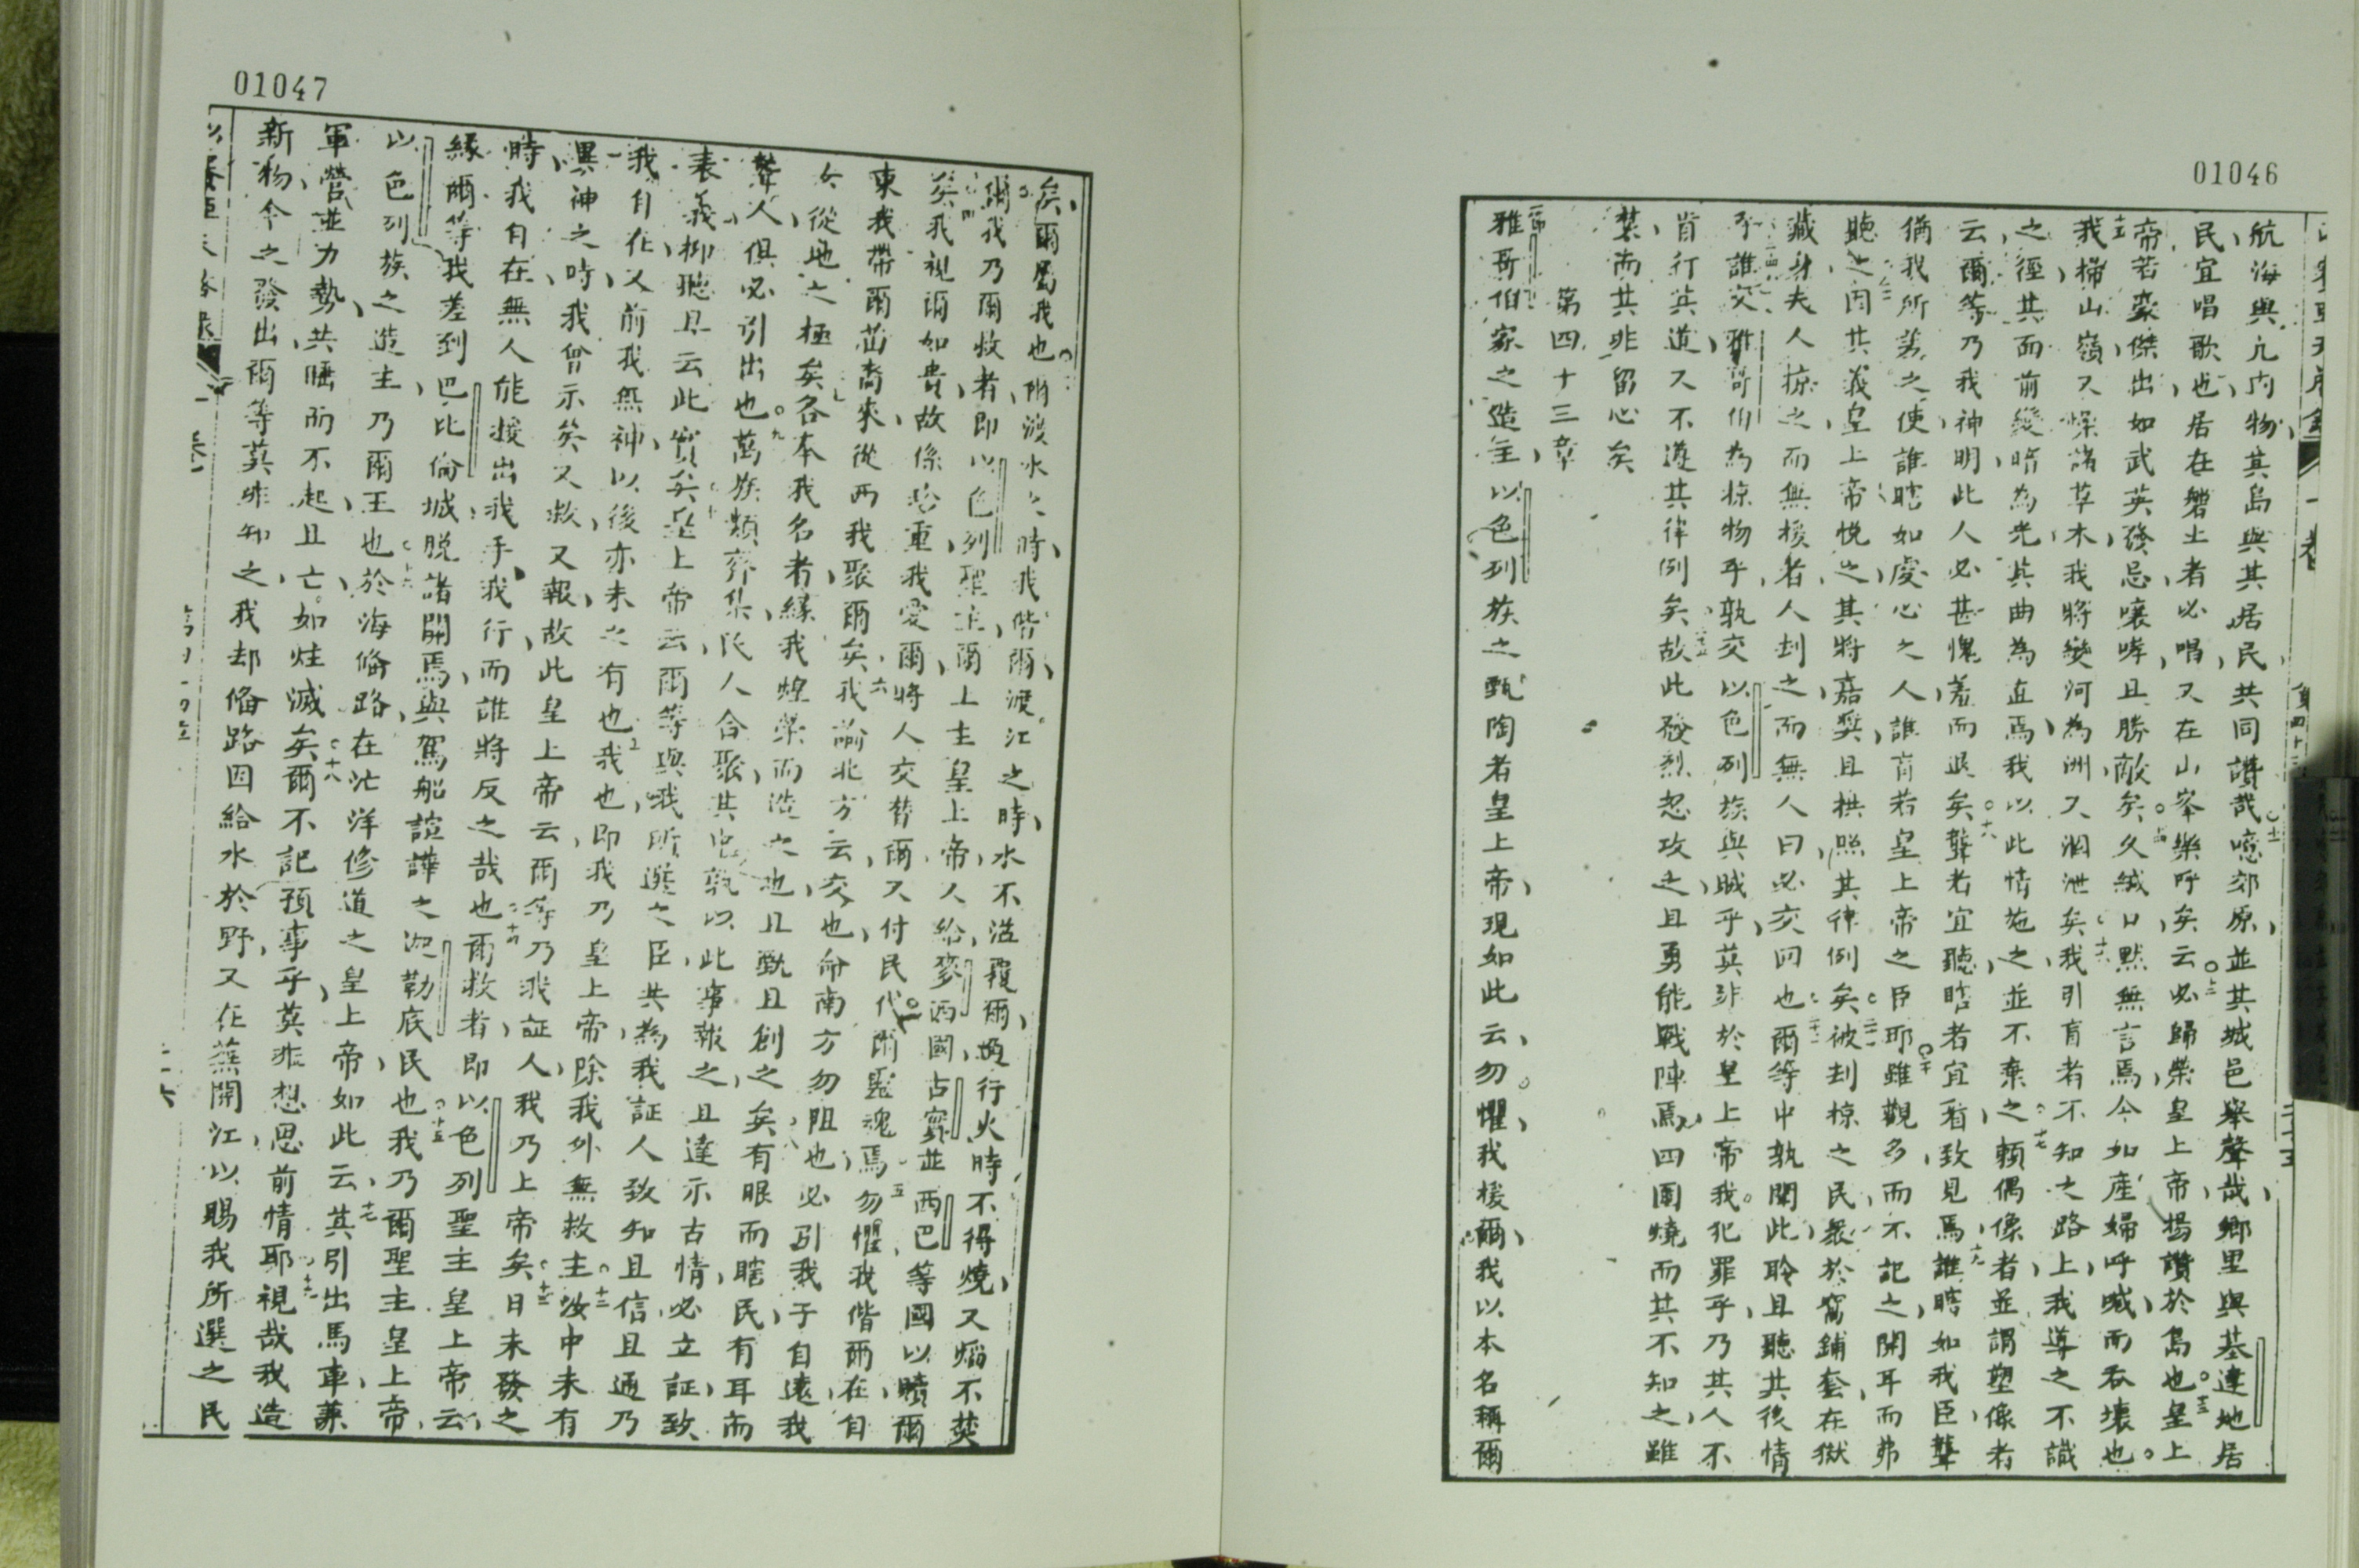 01046
航海與凢內物其島與其居民共同讚哉噫郊原並其城邑舉聲哉鄉里與基達地居
民宜唱歌也居在磐土者必唱又在山峯樂呼矣云必歸榮皇上帝揚讚於島也皇上
帝若豪傑出如武英發忌嚷哮且勝敵矣久緘口默無言焉今如產婦呼喊而吞壞也
我掃山嶺又燥諸草木我將變河為洲又涸泄矣我引盲者不知之路上我導之不識
之徑其面前變暗為光其曲為直焉我以此情施之並不棄之賴偶像者並謂塑像者
云爾等乃我神明此人必甚愧羞而退矣聾者宜聽瞎者宜看致見焉誰瞎如我臣聾
猶我所差之使誰瞎如虔心之人誰盲若皇上帝之臣耶雖觀多而不記之開耳而弗
聽之因其義皇上帝悅之其將嘉獎且拱照其律例矣彼刦掠之民衆於窩鋪套在獄
藏身夫人掠之而無援者人刦之而無人曰必交回也爾等中孰聞此聆且聽其後情
乎誰交雅哥伯為掠物乎孰交以色列族與賊乎莫非於皇上帝我犯罪乎乃其人不
肯行其道又不遵其律例矣故此發烈忿攻之且勇能戰陣焉四圍燒而其不知之雖
焚而其非留心矣
第四十三章
雅哥伯家之造主以色列族之甄陶者皇上帝現如此云勿懼我援爾我以本名稱爾
01047
矣爾屬我也爾渡水之時我偕爾渡江之時水不溢覆爾爾行火時不得燒又焰不焚
爾我乃爾救者即以色列聖主爾上主皇上帝人給麥西國古實並西巴等國以贖爾
矣我視爾如貴故係珍重我愛爾將人交替爾又付民代爾靈魂焉勿懼我偕爾在自
東我帶爾苗裔來從西我聚爾矣我諭北方云交也命南方勿阻也必引我子自遠我
女從地之極矣各本我名者緣我煌榮而造之也且甄且創之矣有眼而瞎民有耳而
聾人俱必引出也萬族類齊集民人合聚其中孰以此事報之且達示古情必立証致
表義抑聽且云此實矣皇上帝云爾等與我所選之臣共為我証人致知且信且通乃
我自在又前我無神以後亦未之有也我也即我乃皇上帝除我外無救主汝中未有
異神之時我曾示矣又救又報故此皇上帝云爾等乃我証人我乃上帝矣日未發之
時我自在無人能援出我手我行而誰將反之哉也爾救者即以色列聖主皇上帝云
緣爾等我差到巴比倫城脫諸閂焉與駕船諠譁之迦勒底民也我乃爾聖主皇上帝
以色列族之造主乃爾王也於海偹路在汒洋修道之皇上帝如此云其引出馬車兼
軍營並力勢共臥而不起且亡如炷滅矣爾不記預事乎莫非想思前情耶視哉我造
新物今之發出爾等莫非知之我却偹路因給水於野又在蕪開江以賜我所選之民